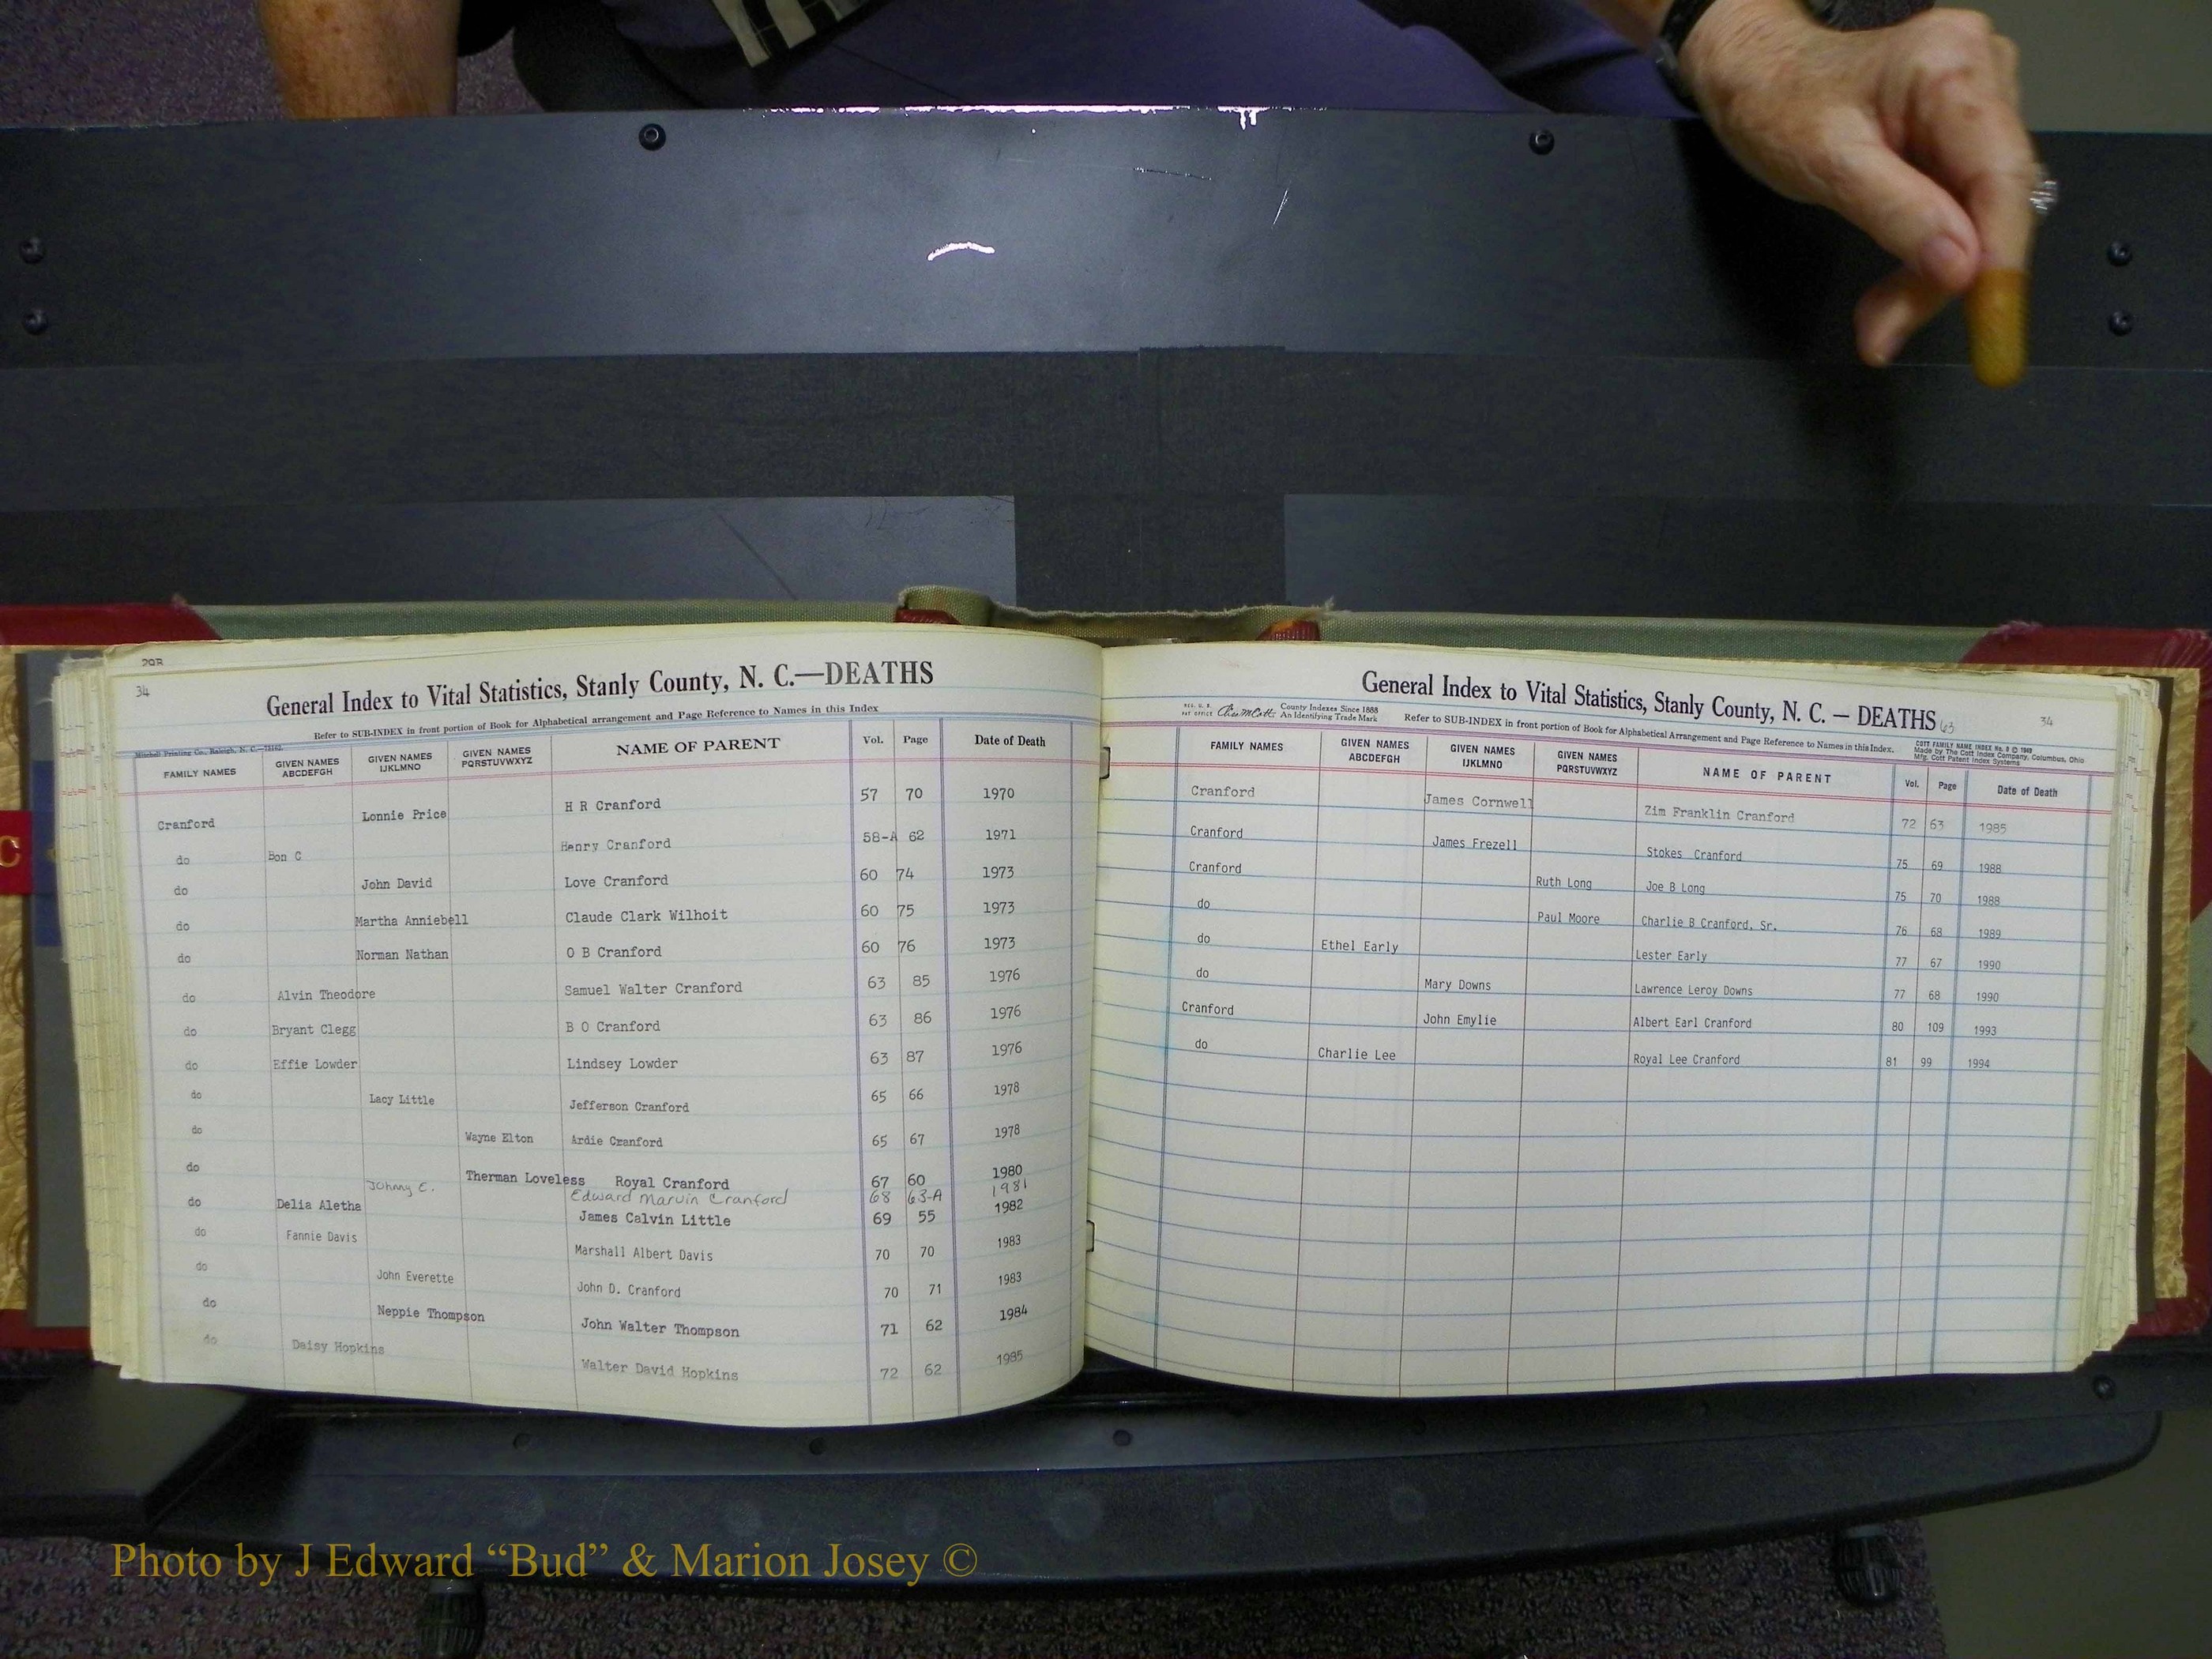 29B
34
General Index to Vital Statistics, Stanly County, N. C.—DEATHS
Refer to SUB-INDEX in front portion of Book for Alphabetical arrangement and Page Reference to Names in this Index
Mitchell Printing Co., Raleigh, N. C.
FAMILY NAMES GIVEN NAMES ABCDEFGH GIVEN NAMES IJKLMNO GIVEN NAMES PQRSTUVWXYZ NAME OF PARENT Vol. Page Date of Death
Cranford Lonnie Price H R Cranford 57 70 1970
do Bon C Henry Cranford 58-A 62 1971
do John David Love Cranford 60 74 1973
do Martha Anniebell Claude Clark Wilhoit 60 75 1973
do Norman Nathan O B Cranford 60 76 1973
do Alvin Theodore Samuel Walter Cranford 63 85 1976
do Bryant Clegg B O Cranford 63 86 1976
do Effie Lowder Lindsey Lowder 63 87 1976
do Lacy Little Jefferson Cranford 65 66 1978
do Wayne Elton Ardie Cranford 65 67 1978
do Therman Loveless Royal Cranford 67 60 1980
Johnny E. Edward Marvin Cranford 68 63-A 1981
do Delia Aletha James Calvin Little 69 55 1982
do Fannie Davis Marshall Albert Davis 70 70 1983
do John Everette John D. Cranford 70 71 1983
do Neppie Thompson John Walter Thompson 71 62 1984
do Daisy Hopkins Walter David Hopkins 72 62 1985
General Index to Vital Statistics, Stanly County, N. C. — DEATHS 63
34
REG. U. S. PAT OFFICE County Indexes Since 1888 An Identifying Trade Mark
Refer to SUB-INDEX in front portion of Book for Alphabetical Arrangement and Page Reference to Names in this Index.
COTT FAMILY NAME INDEX No. 9 © 1949
Made by The Cott Index Company, Columbus, Ohio
Mfg. Cott Patent Index Systems
FAMILY NAMES GIVEN NAMES ABCDEFGH GIVEN NAMES IJKLMNO GIVEN NAMES PQRSTUVWXYZ NAME OF PARENT Vol. Page Date of Death
Cranford James Cornwell Zim Franklin Cranford 72 63 1985
Cranford James Frezell Stokes Cranford 75 69 1988
Cranford Ruth Long Joe B Long 75 70 1988
do Paul Moore Charlie B Cranford, Sr. 76 68 1989
do Ethel Early Lester Early 77 67 1990
do Mary Downs Lawrence Leroy Downs 77 68 1990
Cranford John Emylie Albert Earl Cranford 80 109 1993
do Charlie Lee Royal Lee Cranford 81 99 1994
C
Photo by J Edward “Bud” & Marion Josey ©